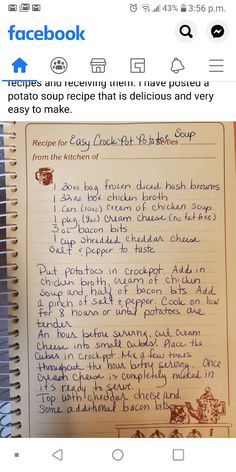 43% 3:56 p.m.
facebook
recipes and receiving them. I have posted a
potato soup recipe that is delicious and very
easy to make.
Recipe for Easy Crock-Pot Potatoe Soup
Serves
from the kitchen of
1 30oz bag frozen diced hash browns
1 32oz box chicken broth
1 can (10oz) cream of chicken soup
1 pkg (8oz) cream cheese (no fat free)
3 oz bacon bits
1 cup shredded cheddar cheese
Salt & pepper to taste
Put potatoes in crockpot. Add in
chicken broth, cream of chicken
soup and half of bacon bits. Add
a pinch of salt & pepper. Cook on low
for 8 hours or until potatoes are
tender.
An hour before serving, cut cream
cheese into small cubes. Place the
cubes in crockpot. Mix a few times
throughout the hour before serving. Once
cream cheese is completely mixed in
it's ready to serve.
Top with cheddar cheese and
some additional bacon bits